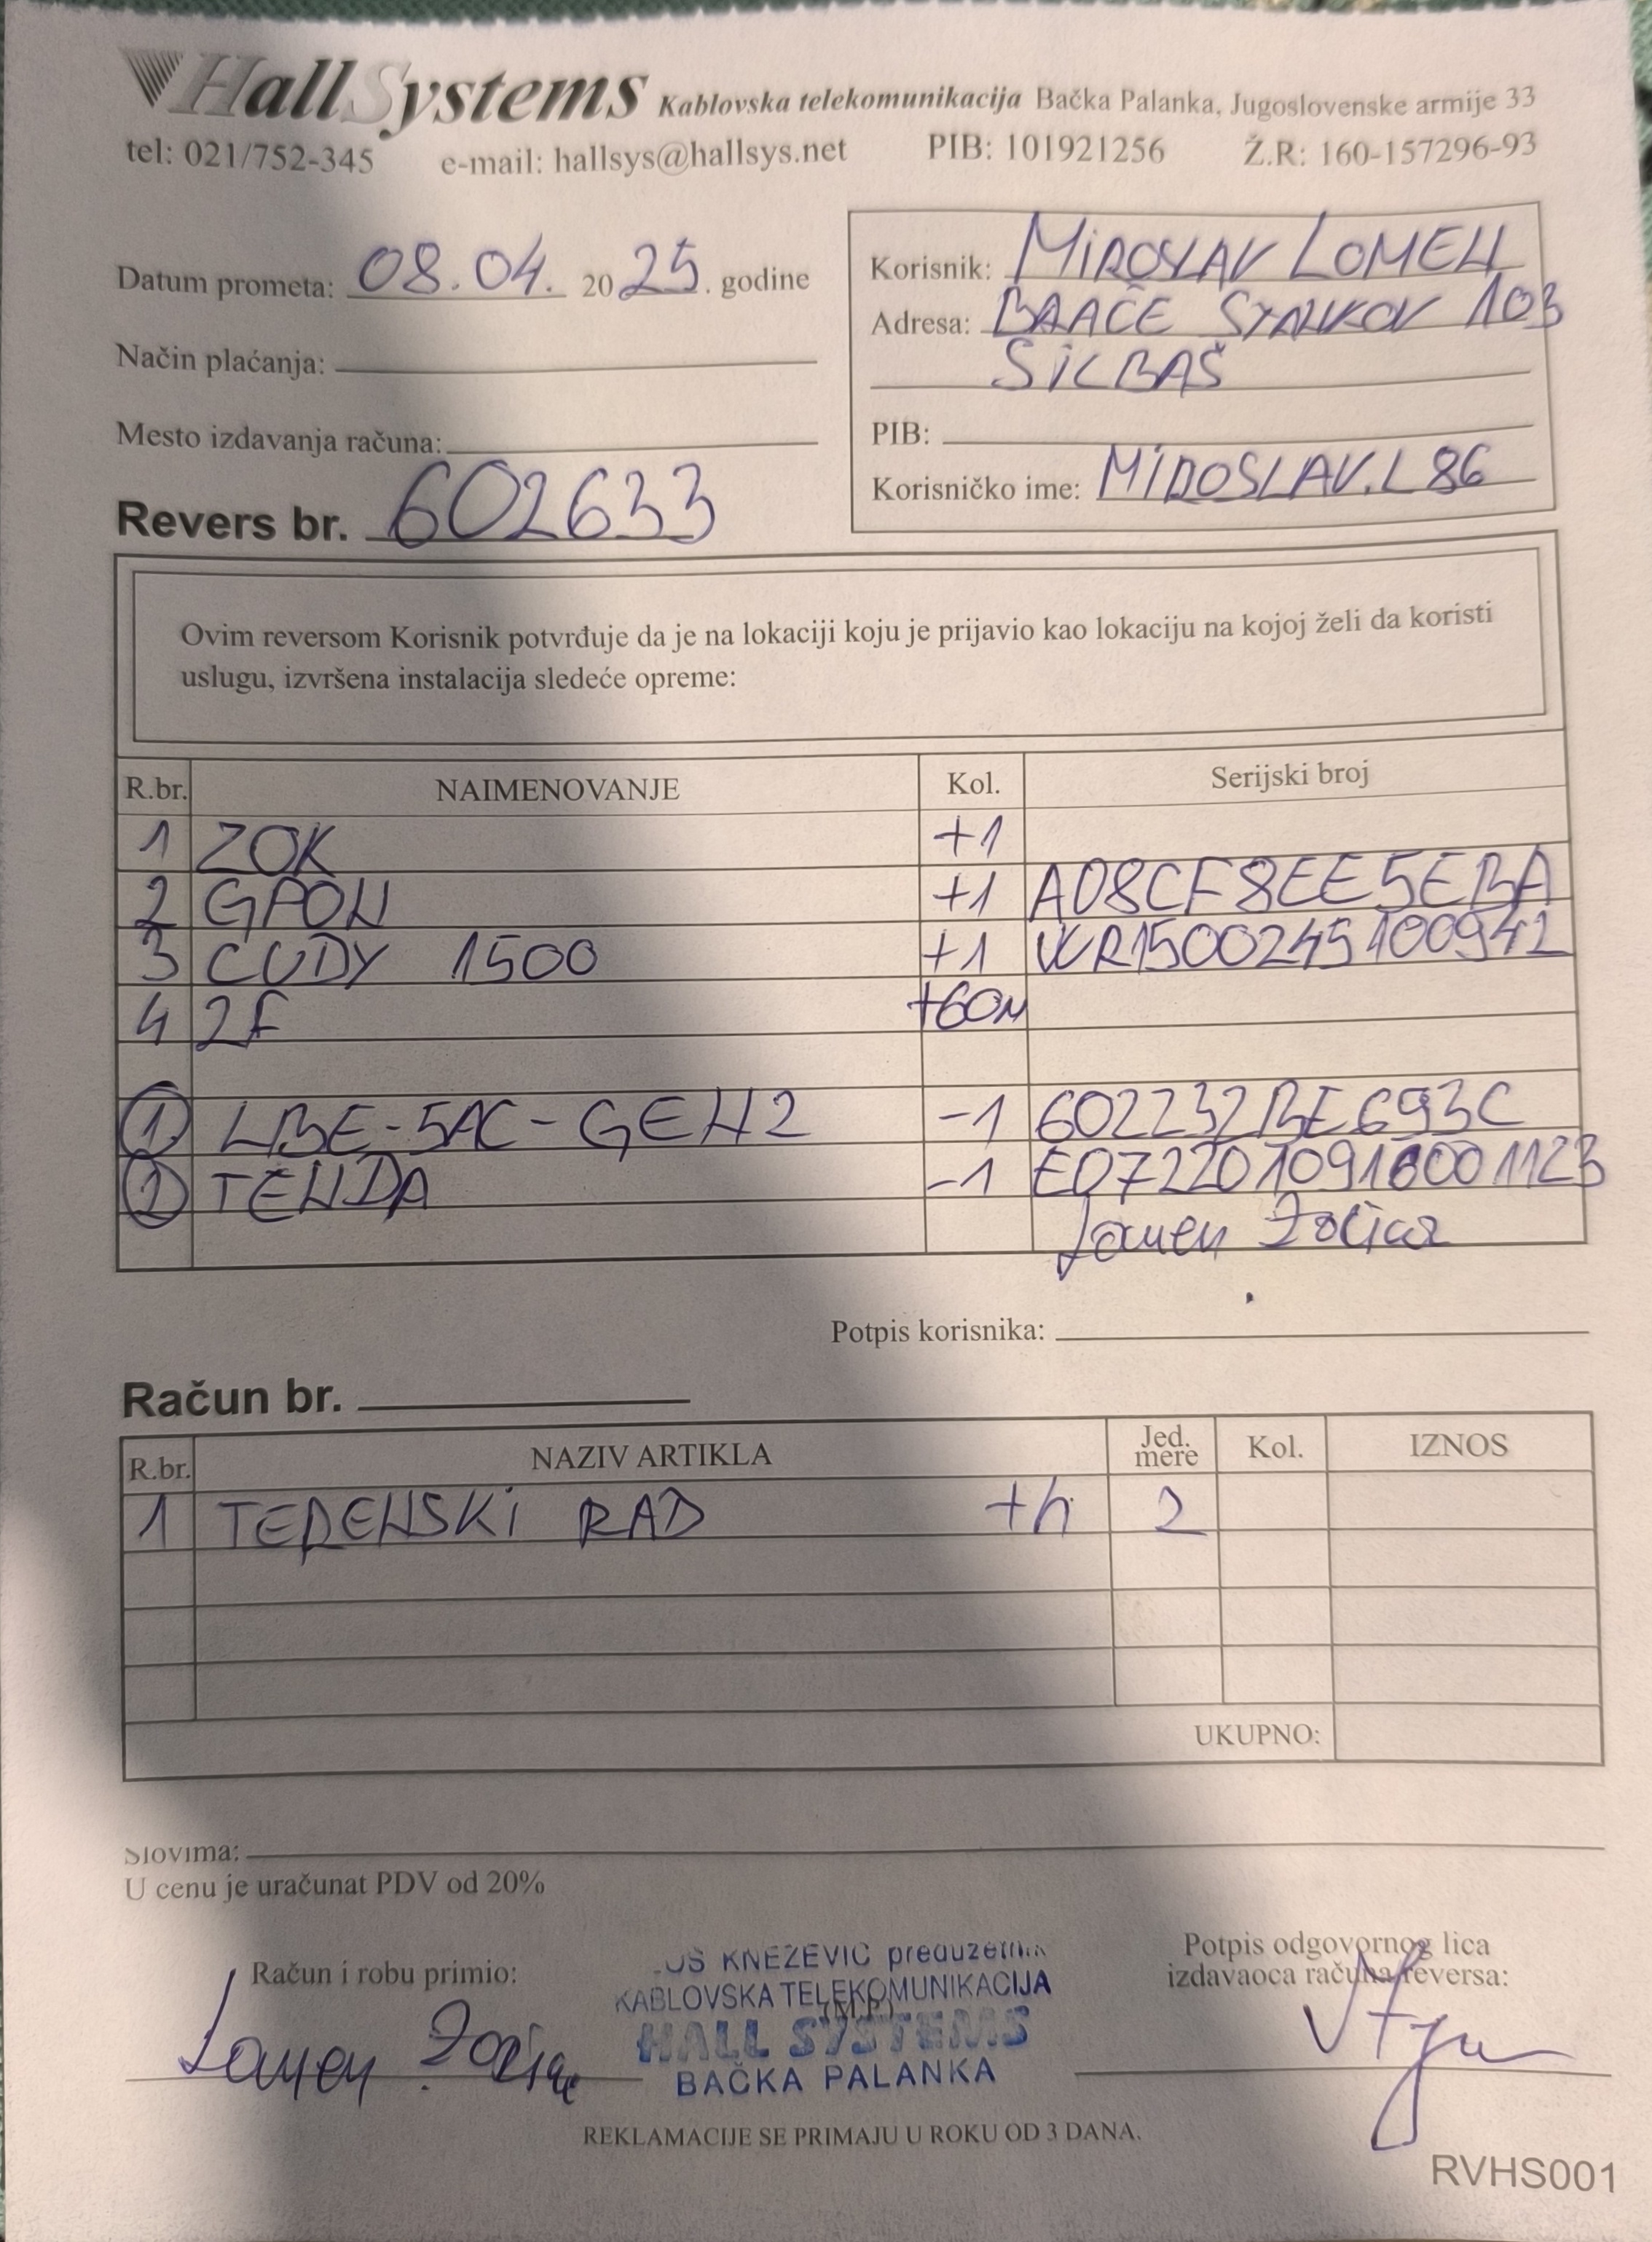 HallSystems Kablovska telekomunikacija Bačka Palanka, Jugoslovenske armije 33
tel: 021/752-345 e-mail: hallsys@hallsys.net PIB: 101921256 Ž.R: 160-157296-93
Datum prometa: 08.04. 2025. godine
Način plaćanja:
Mesto izdavanja računa:
Revers br. 602633
Korisnik: MIROSLAV LOMEN
Adresa: BRAĆE STANKOV 103
SILBAŠ
PIB:
Korisničko ime: MIROSLAV.L86
Ovim reversom Korisnik potvrđuje da je na lokaciji koju je prijavio kao lokaciju na kojoj želi da koristi
uslugu, izvršena instalacija sledeće opreme:
R.br. NAIMENOVANJE Kol. Serijski broj
1 ZOK +1
2 GPON +1 A08CF8EE5EBA
3 CUDY 1500 +1 WR1500245100942
4 2F +60M
1 LBE-5AC-GEN2 -1 602232BE693C
2 TENDA -1 E0722010916001123
Lomen Zorica
Potpis korisnika:
Račun br.
R.br. NAZIV ARTIKLA Jed. mere Kol. IZNOS
1 TERENSKI RAD +h 2
UKUPNO:
Slovima:
U cenu je uračunat PDV od 20%
Račun i robu primio:
Lomen Zorica
KNEŽEVIĆ preduzetnik
KABLOVSKA TELEKOMUNIKACIJA
(M.P.)
HALL SYSTEMS
BAČKA PALANKA
Potpis odgovornog lica
izdavaoca računa/reversa:
REKLAMACIJE SE PRIMAJU U ROKU OD 3 DANA.
RVHS001